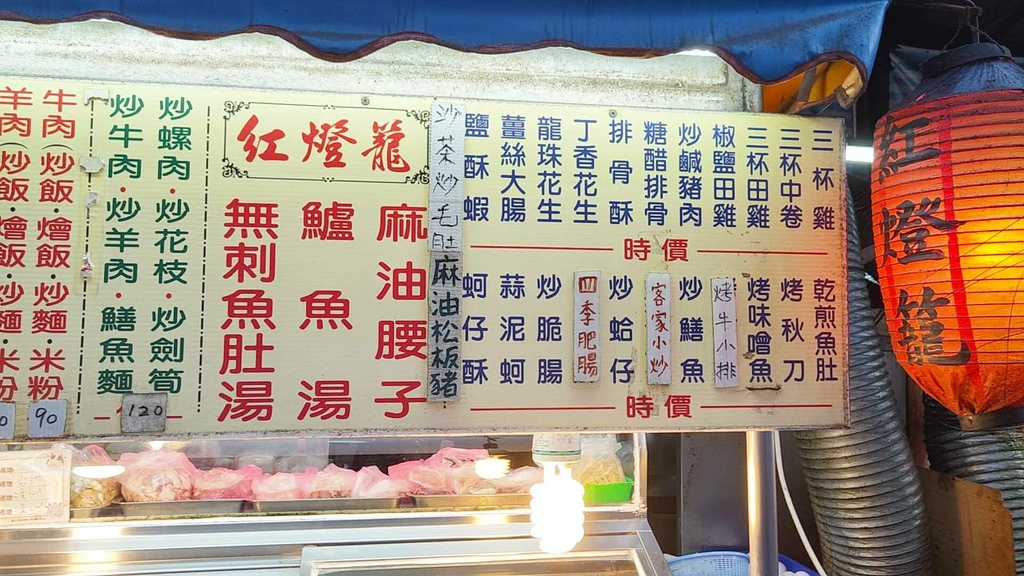 紅燈籠
三杯雞
三杯中卷
三杯田雞
椒鹽田雞
炒鹹豬肉
糖醋排骨
排骨酥
丁香花生
龍珠花生
薑絲大腸
鹽酥蝦
時價
乾煎魚肚
烤秋刀
烤味噌魚
烤牛小排
炒鱔魚
客家小炒
炒蛤仔
四季肥腸
炒脆腸
蒜泥蚵
蚵仔酥
時價
沙茶炒毛肚
麻油松板豬
紅燈籠
麻油腰子
鱸魚湯
無刺魚肚湯
炒螺肉·炒花枝·炒劍筍
炒牛肉·炒羊肉·鱔魚麵
120
牛肉(炒飯·燴飯·炒麵·米粉
羊肉(炒飯·燴飯·炒麵·米粉
90